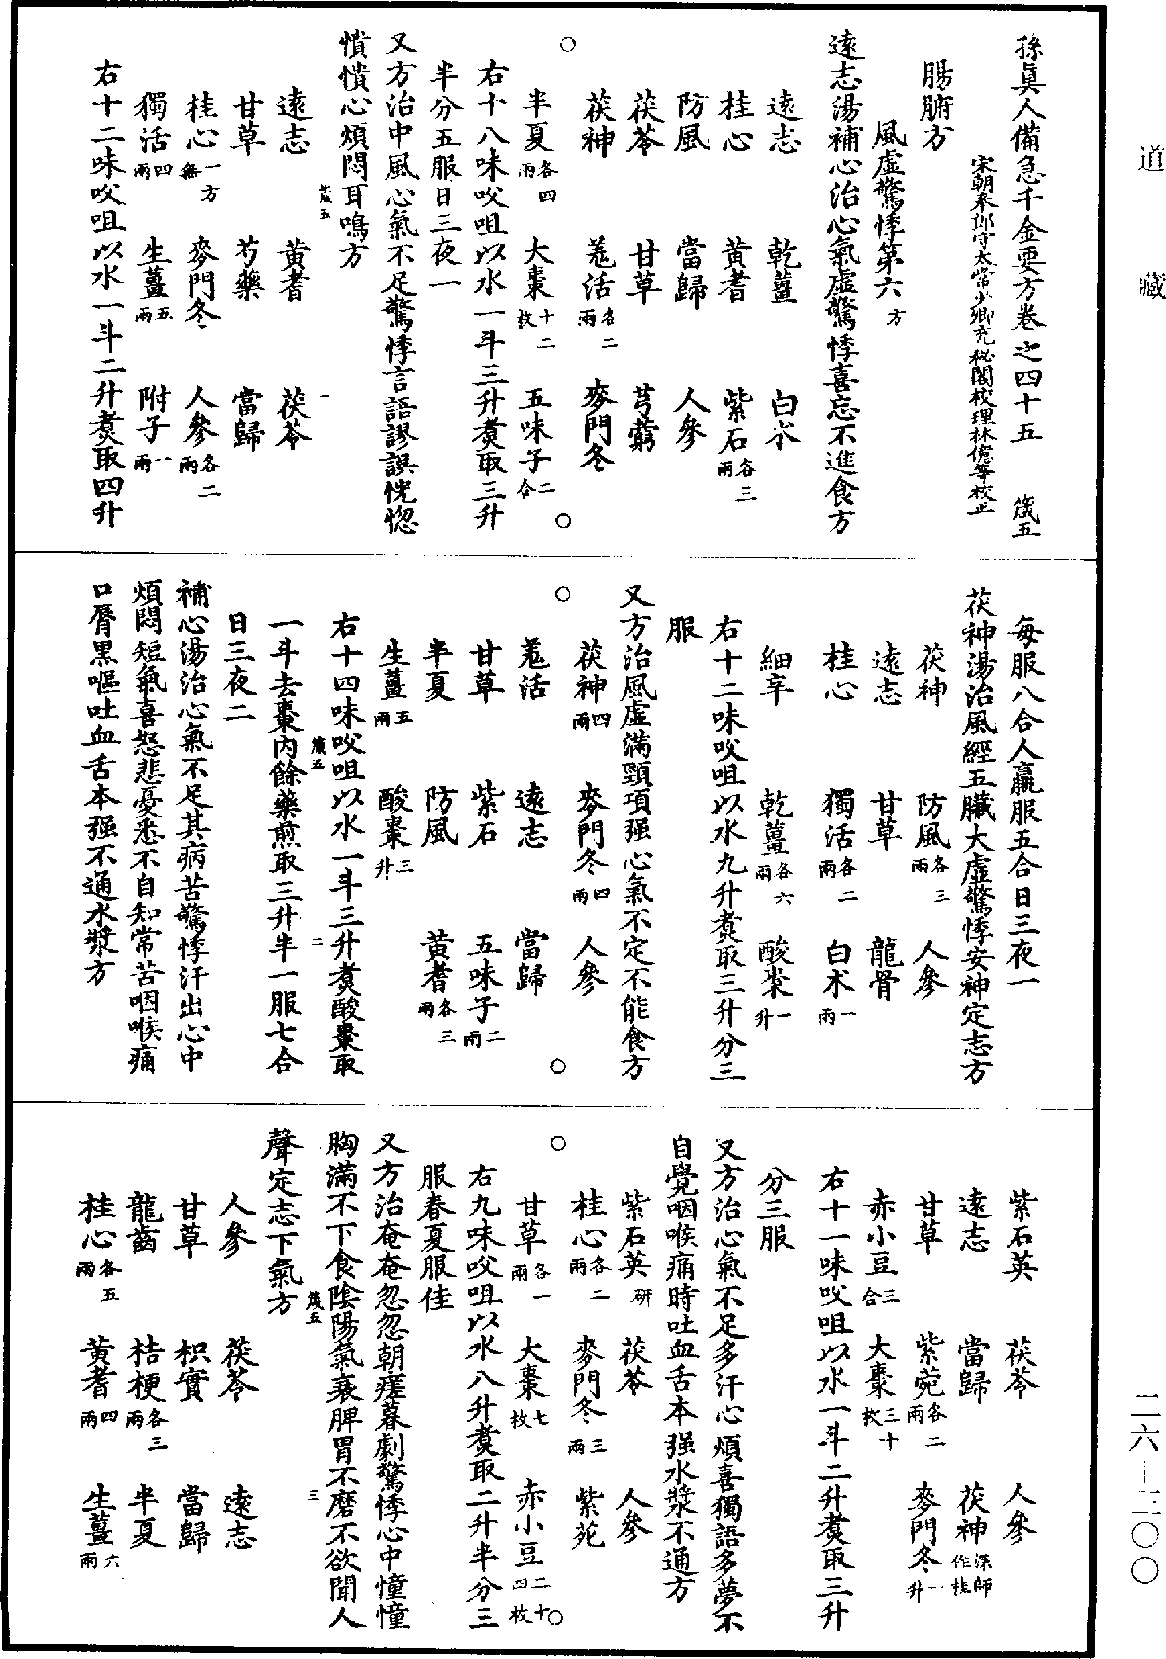 道藏
孫真人備急千金要方卷之四十五　箴五
宋朝奉郎守太常少卿充秘閣校理林億等校正
腸腑方
風虛驚悸第六方
遠志湯補心治心氣虛驚悸喜忘不進食方
遠志　乾薑　白朮
桂心　黃耆　紫石各三兩
防風　當歸　人參
茯苓　甘草　芎藭
茯神　羌活各二兩　麥門冬
半夏各四兩　大棗十二枚　五味子二合
右十八味㕮咀以水一斗三升煮取三升
半分五服日三夜一
又方治中風心氣不足驚悸言語謬誤恍惚
憒憒心煩悶耳鳴方
箴五　一
遠志　黃耆　茯苓
甘草　芍藥　當歸
桂心一方無　麥門冬　人參各二兩
獨活四兩　生薑五兩　附子一兩
右十二味㕮咀以水一斗二升煮取四升
每服八合人羸服五合日三夜一
茯神湯治風經五臟大虛驚悸安神定志方
茯神　防風各三兩　人參
遠志　甘草　龍骨
桂心　獨活各二兩　白朮一兩
細辛　乾薑各六兩　酸棗一升
右十二味㕮咀以水九升煮取三升分三
服
又方治風虛滿頸項强心氣不定不能食方
茯神四兩　麥門冬四兩　人參
羌活　遠志　當歸
甘草　紫石　五味子二兩
半夏　防風　黃耆各三兩
生薑五兩　酸棗三升
右十四味㕮咀以水一斗三升煮酸棗取
箴五　二
一斗去棗內餘藥煎取三升半一服七合
日三夜二
補心湯治心氣不足其病苦驚悸汗出心中
煩悶短氣喜怒悲憂悉不自知常苦咽喉痛
口脣黑嘔吐血舌本强不通水漿方
紫石英　茯苓　人參
遠志　當歸　茯神深師作桂
甘草　紫菀各二兩　麥門冬一升
赤小豆三合　大棗三十枚
右十一味㕮咀以水一斗二升煮取三升
分三服
又方治心氣不足多汗心煩喜獨語多夢不
自覺咽喉痛時吐血舌本强水漿不通方
紫石英研　茯苓　人參
桂心各二兩　麥門冬三兩　紫菀
甘草各一兩　大棗七枚　赤小豆二十四枚
右九味㕮咀以水八升煮取二升半分三
服春夏服佳
又方治奄奄忽忽朝瘥暮劇驚悸心中憧憧
胸滿不下食陰陽氣衰脾胃不磨不欲聞人
箴五　三
聲定志下氣方
人參　茯苓　遠志
甘草　枳實　當歸
龍齒　桔梗各三兩　半夏
桂心各五兩　黃耆四兩　生薑六兩
二六—二〇〇